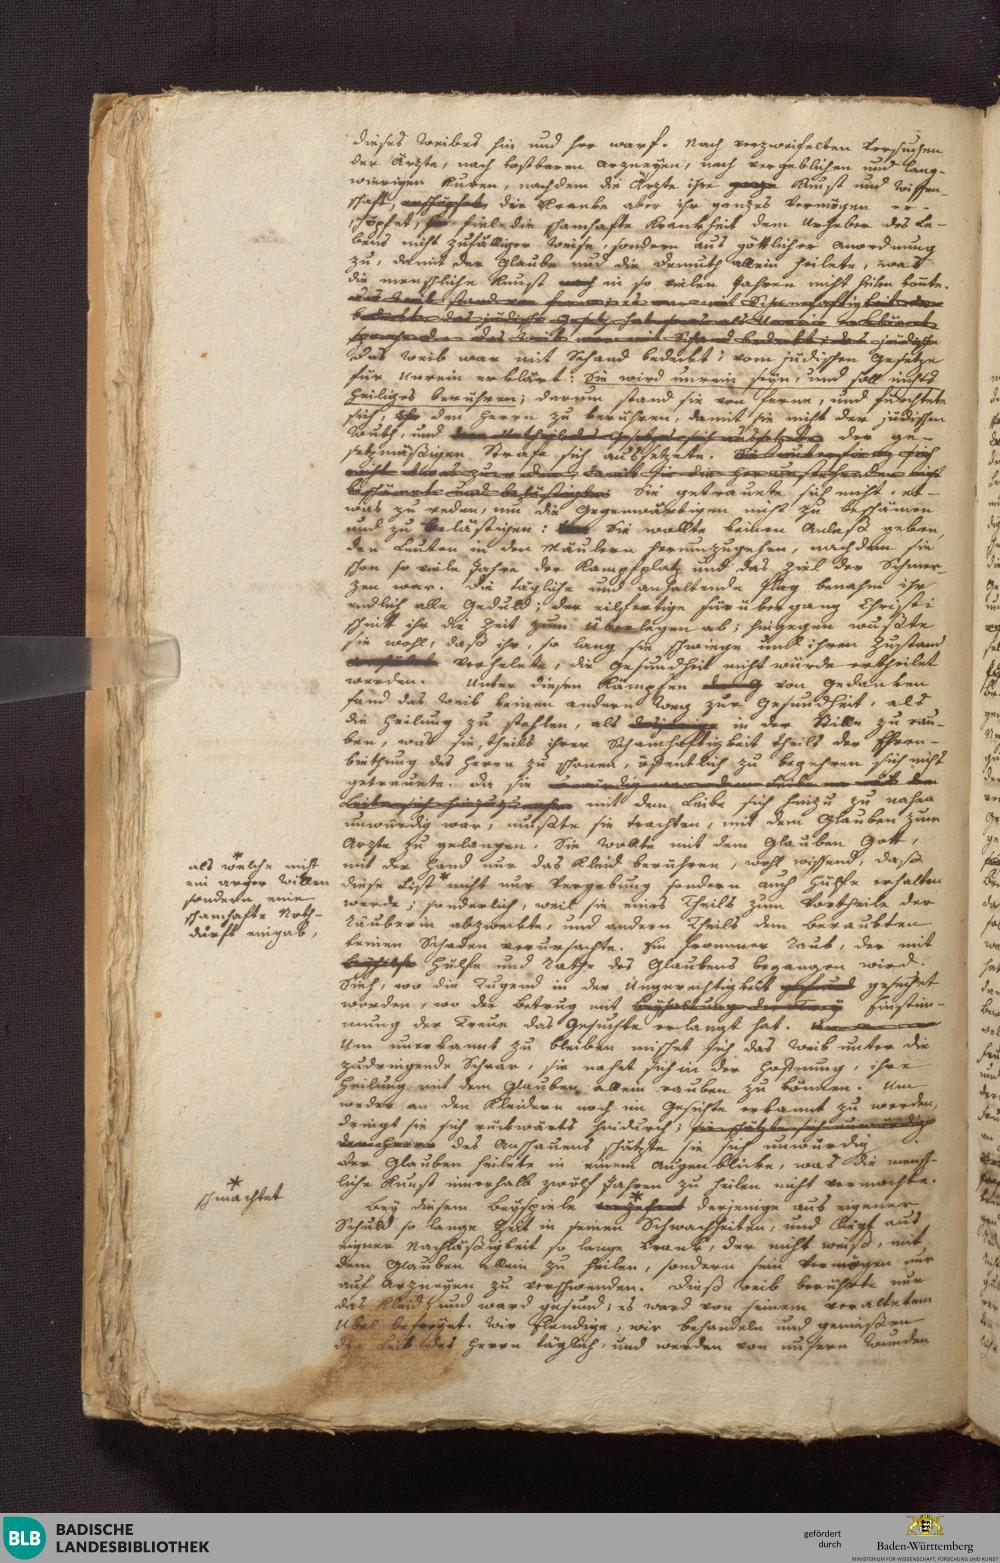 dieses Weibes hin und her warf. Nach verzweifelten Versuchen
der Ärzte, nach kostbaren Arzneyen, nach vergeblichen und lang-
wierigen Kuren, nachdem die Ärzte ihre ganze Kunst und Wissen-
schaft, erschöpfet, die Kranke aber ihr ganzes Vermögen er-
schöpfet, fiel die schamhafte Krankheit dem Urheber des Le-
bens nicht zufälliger Weise, sondern aus göttlicher Anordnung
zu, damit der Glaube und die Demuth allein heilete, was
die menschliche Kunst in so vielen Jahren nicht heilen konte.
das Weib war mit Schand bedeckt: vom jüdischen Gesetze
für unrein erklärt: Sie wird unrein seyn, und soll nichts
heiliges berühren; darum stand sie von ferne, und fürchtete
sich, den Herrn zu berühren, damit sie nicht der jüdischen
Wuth, und der ge-
setzmäßigen Strafe sich aussetzete.
Sie getrauete sich nicht et-
was zu reden, um die Gegenwärtigen nicht zu beschämen
und zu belästigen: Sie wollte keinen Anlaß geben,
den Leuten in den Mäulern herumzugehen, nachdem sie
schon so viele Jahre der Kampfplatz und das Ziel der Schmer-
zen war. Die tägliche und anhaltende Plag benahm ihr
endlich alle Geduld; der eilfertige Fürübergang Christi
schnitt ihr die Zeit zum Überlegen ab; hingegen wußte
sie wohl, daß ihr, so lang sie schwiege und ihren Zustand
verhelete, die Gesundheit nicht würde ertheilet
werden. Unter diesen Kämpfen von Gedanken
fand das Weib keinen andern Weg zur Gesundheit, als
die Heilung zu stehlen, als in der Stille zu rau-
ben, was sie, theils ihrer Schamhaftigkeit theils der Ehren-
biethung des Herrn zu schonen, öffentlich zu begehren sich nicht
getrauete. Da sie
mit dem Leibe sich hinzu zu nahen
unwürdig war, mußte sie trachten, mit dem Glauben zum
Arzte zu gelangen. Sie wollte mit dem Glauben Gott,
mit der Hand nur das Kleid berühren, wohl wissend, daß
diese List * nicht nur Vergebung sondern auch Hülfe erhalten
werde; sonderlich, weil sie eines Theils zum Vortheile der
Räuberin abzweckte, und andern Theils dem beraubten
keinen Schaden verursachte. Ein frommer Raub, der mit
Hülfe und Rathe des Glaubens begangen wird.
Sieh, wo die Tugend in der Ungerechtigkeit gesuchet
worden, wo der Betrug mit Einstim-
mung der Treue das Gesuchte erlangt hat.
Um unerkannt zu bleiben mischet sich das Weib unter die
zudringende Schaar, sie nahet sich in der Hoffnung, ihre
Heilung mit dem Glauben allein rauben zu können. Um
weder an den Kleidern noch im Gesichte erkannt zu werden,
dringt sie sich rückwärts hindurch;
des Anschauens schätzte sie sich unwürdig
der Glauben heilete in einem Augenblicke, was die mensch-
liche Kunst innerhalb zwölf Jahren zu heilen nicht vermochte.
Bey diesem Beyspiele * derjenige aus eigener
Schuld so lange Zeit in seinen Schwachheiten, und liegt aus
eigner Nachläßigkeit so lange krank, der nicht weiß, mit
dem Glauben allein zu heilen, sondern sein Vermögen nur
auf Arzneyen zu verschwenden. Dieß Weib berührte nur
das Kleid, und ward gesund; es ward von seinem veralteten
Übel befreyet. Wir Elendige, wir behandeln und genießen
den Leib des Herrn täglich, und werden von unsern Wunden
*
als welche nicht
ein arger Willen
sondern eine
schamhafte Noth-
durft eingab,
*
schmachtet
BLB
BADISCHE
LANDESBIBLIOTHEK
gefördert
durch
Baden-Württemberg
MINISTERIUM FÜR WISSENSCHAFT, FORSCHUNG UND KUNST